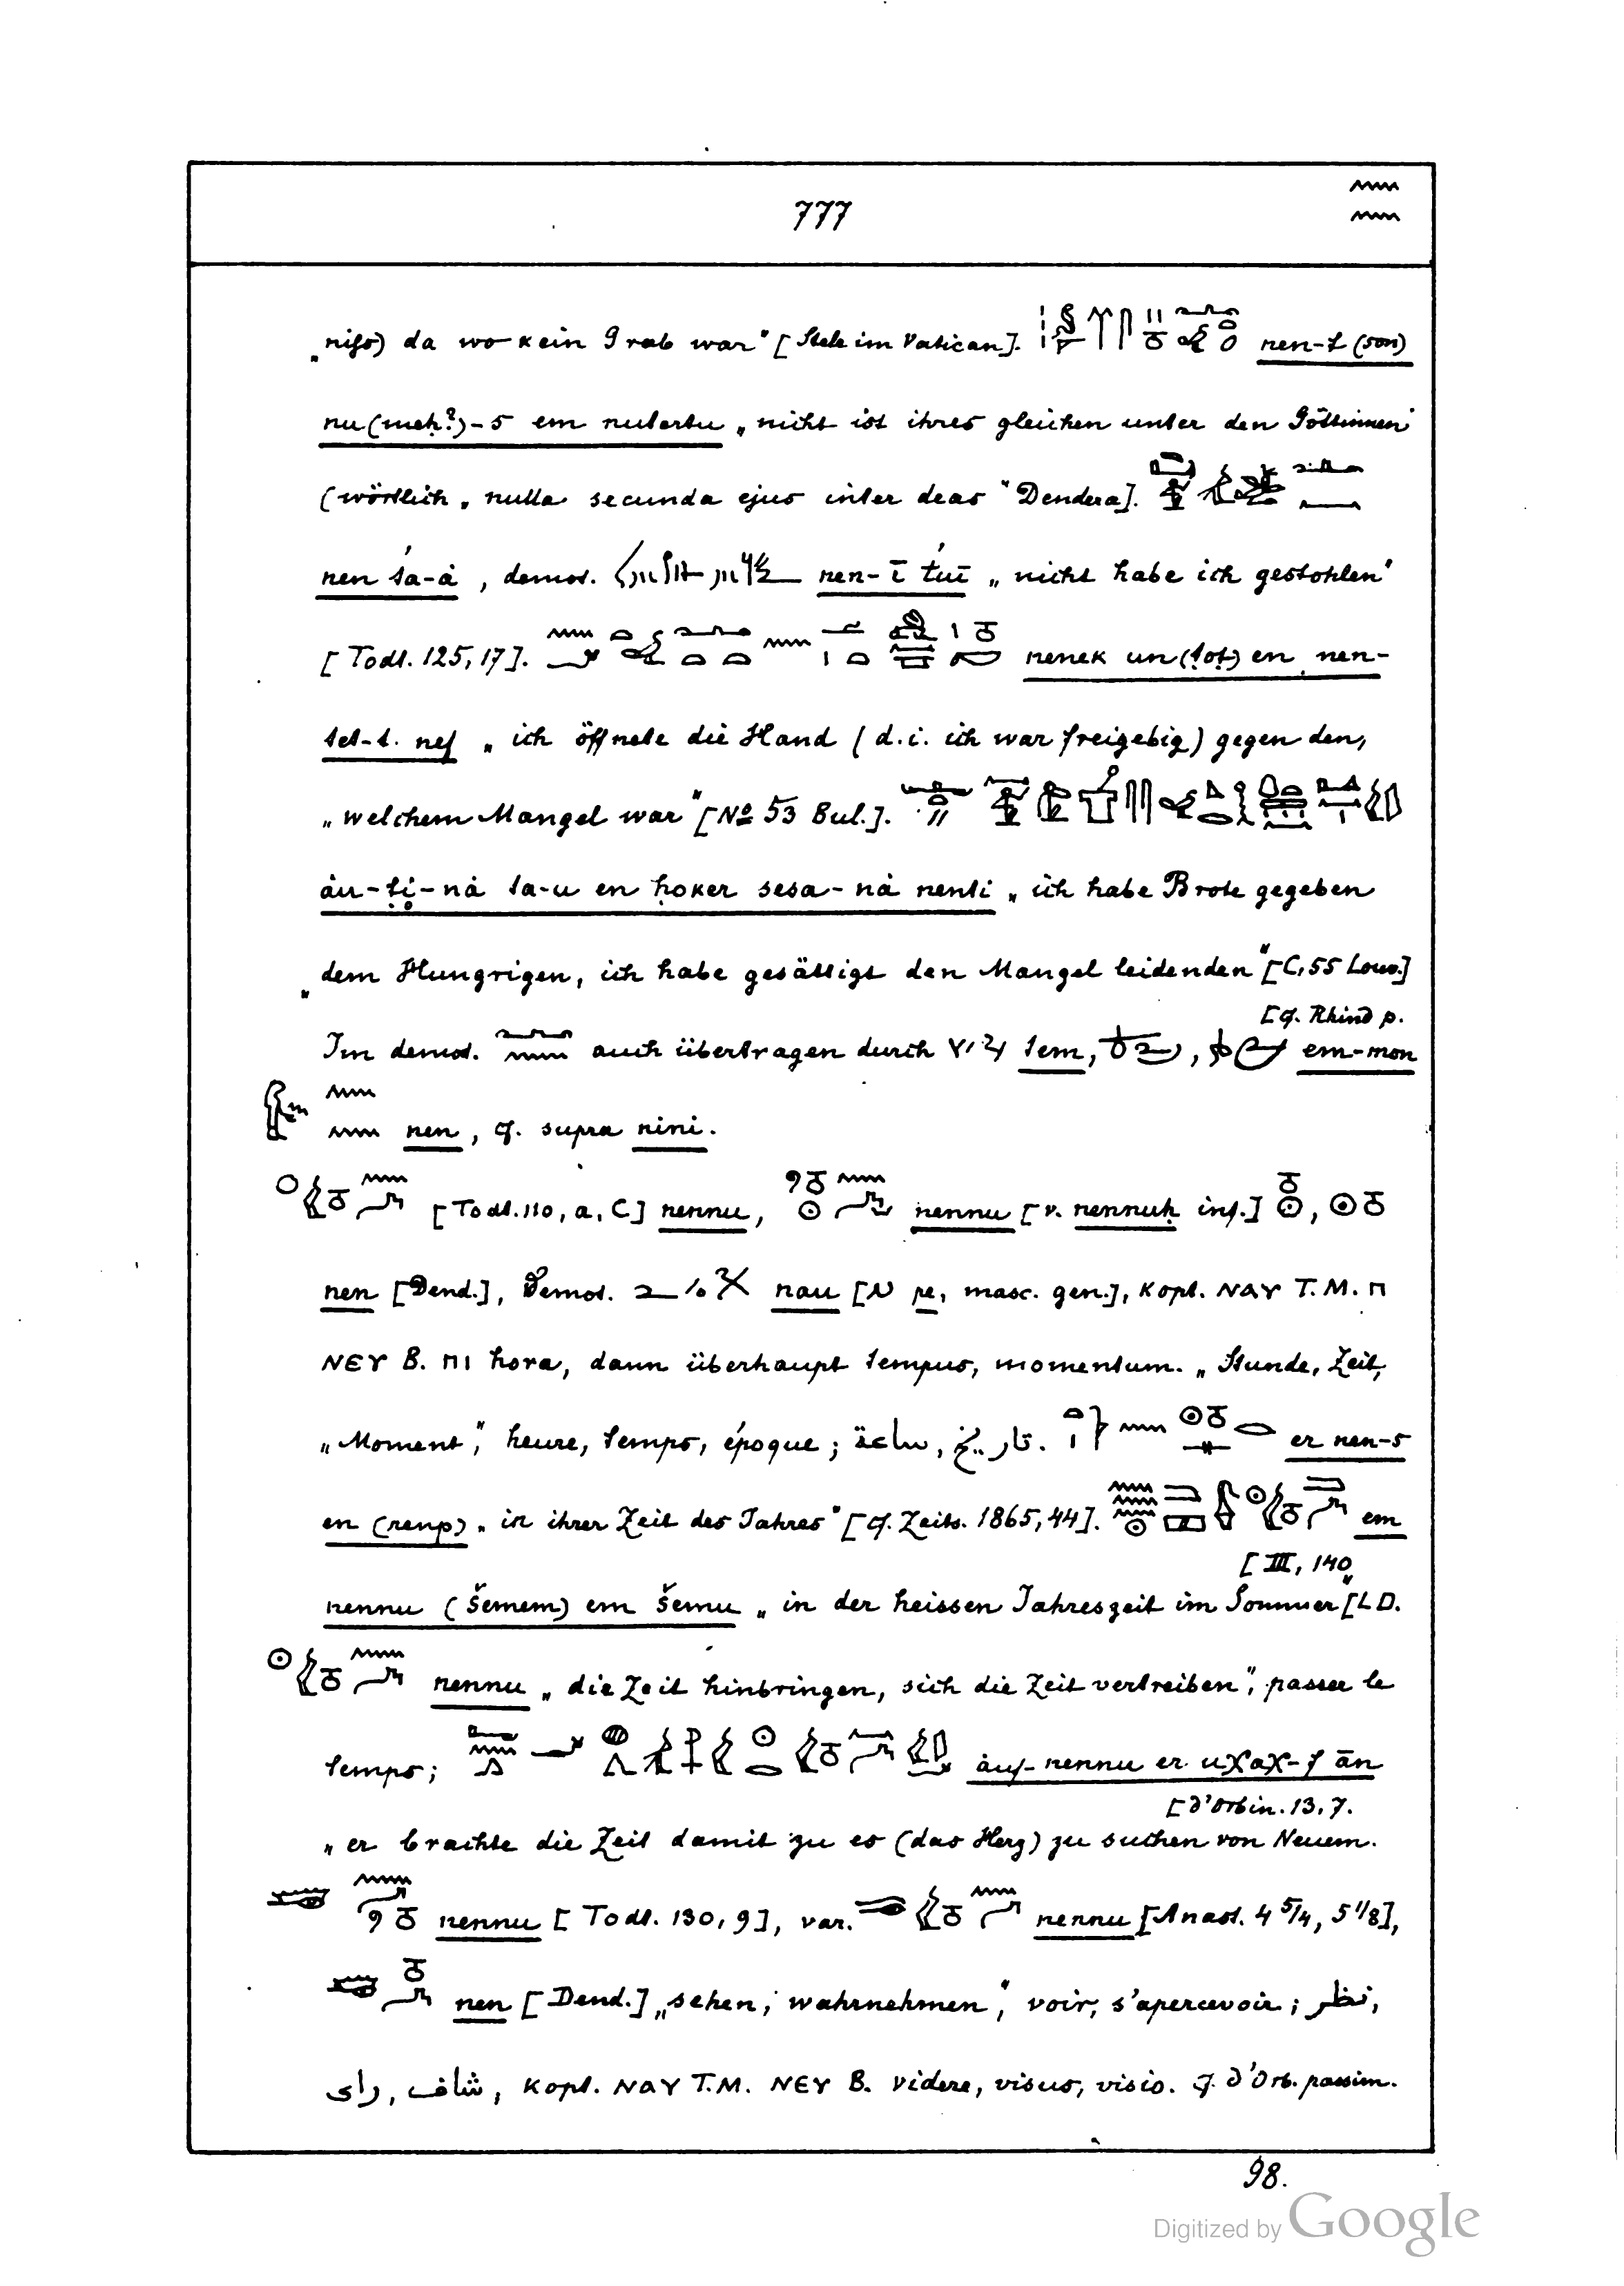 777
„niss) da wo kein Grab war" [Stele im Vatican]. nen-t (son)
nu (meḥ?)-s em nutertu „nicht ist ihres gleichen unter den Göttinnen"
(wörtlich „nulla secunda ejus inter deas" Dendera].
nen ta-à, demot. nen-ī tuī „nicht habe ich gestohlen"
[Todt. 125, 17]. nenek un (ṭoṭ) en nen-
tet-t. nef „ich öffnete die Hand (d.i. ich war freigebig) gegen den,
„welchem Mangel war" [No 53 Bul.].
àu-ṭi-nà ta-u en ḥoker sesa-nà nenti „ich habe Brote gegeben
„dem Hungrigen, ich habe gesättigt den Mangel leidenden" [C, 55 Louv.]
[cf. Rhind p.
Im demot. auch übertragen durch tem, em-mon
nen, cf. supra nini.
[Todt. 110, a, C] nennu, nennu [v. nennuḥ inf.]
nen [Dend.], Demot. nau [N pe, masc. gen.], Kopt. ⲚⲀⲨ T.M. ⲡ
ⲚⲈⲨ B. ⲡⲓ hora, dann überhaupt tempus, momentum. „Stunde, Zeit,
„Moment", heure, temps, époque; ساعة, تاريخ. er nen-s
en (renp) „in ihrer Zeit des Jahres" [cf. Zeits. 1865, 44]. em
[III, 140
nennu (šemem) em šemu „in der heissen Jahreszeit im Sommer" [LD.
nennu „die Zeit hinbringen, sich die Zeit vertreiben", passer le
temps; àuf-nennu er uχaχ-f ān
[d'Orbin. 13, 7.
„er brachte die Zeit damit zu es (das Herz) zu suchen von Neuem.
nennu [Todt. 130, 9], var. nennu [Anast. 4 5/4, 5 1/8],
nen [Dend.] „sehen, wahrnehmen", voir, s'apercevoir; نظر,
شاف, راى, Kopt. ⲚⲀⲨ T.M. ⲚⲈⲨ B. videre, visus, visio. cf. d'Orb. passim.
98.
Digitized by Google